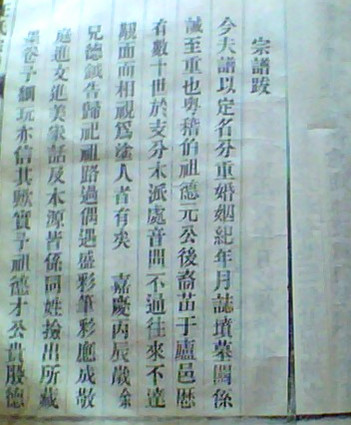 宗譜跋
今夫譜以定名分重婚姻紀年月誌墳墓關係
誠至重也粵稽伯祖德元公後裔苗于廬邑歷
有數十世於支分木派處音問不通往來不達
覿面而相視為塗人者有矣 嘉慶丙辰歲余
兄德鉞告歸祀祖路過偶遇盛彩筆彩應成敬
庭進文進美敘話及木源皆係同姓撿出所藏
卷予細玩亦信其歟實予祖德才公貴股德